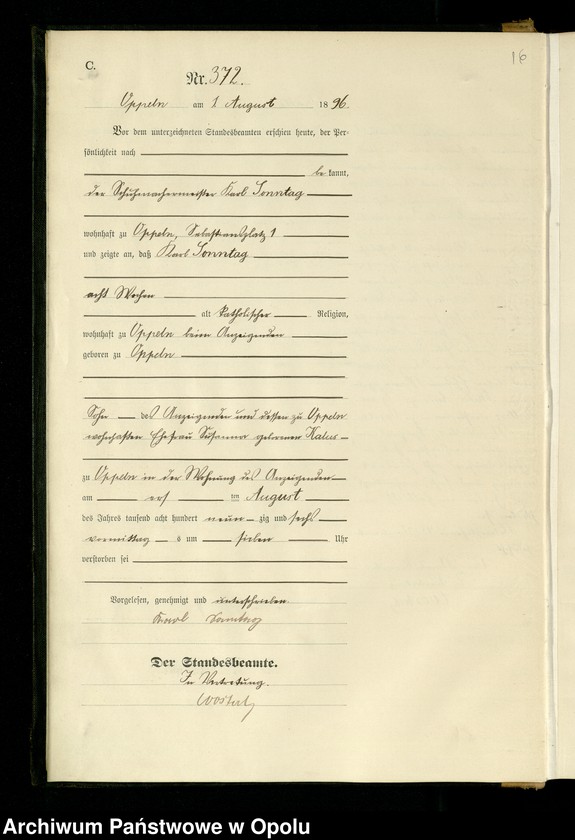 16
C.
Nr. 372.
Oppeln am 1 August 1896.
Vor dem unterzeichneten Standesbeamten erschien heute, der Per-
sönlichkeit nach
be kannt,
der Schuhmachermeister Karl Sonntag
wohnhaft zu Oppeln, Sebastiansplatz 1
und zeigte an, daß Karl Sonntag
acht Wochen
alt katholischer Religion,
wohnhaft zu Oppeln beim Anzeigenden
geboren zu Oppeln
Sohn des Anzeigenden und dessen zu Oppeln
wohnhaften Ehefrau Susanna geborenen Kalus
zu Oppeln in der Wohnung des Anzeigenden
am ersten August
des Jahres tausend acht hundert neun zig und sechs
vormittags um sieben Uhr
verstorben sei
Vorgelesen, genehmigt und unterschrieben
Karl Sonntag
Der Standesbeamte.
In Vertretung.
Archiwum Państwowe w Opolu